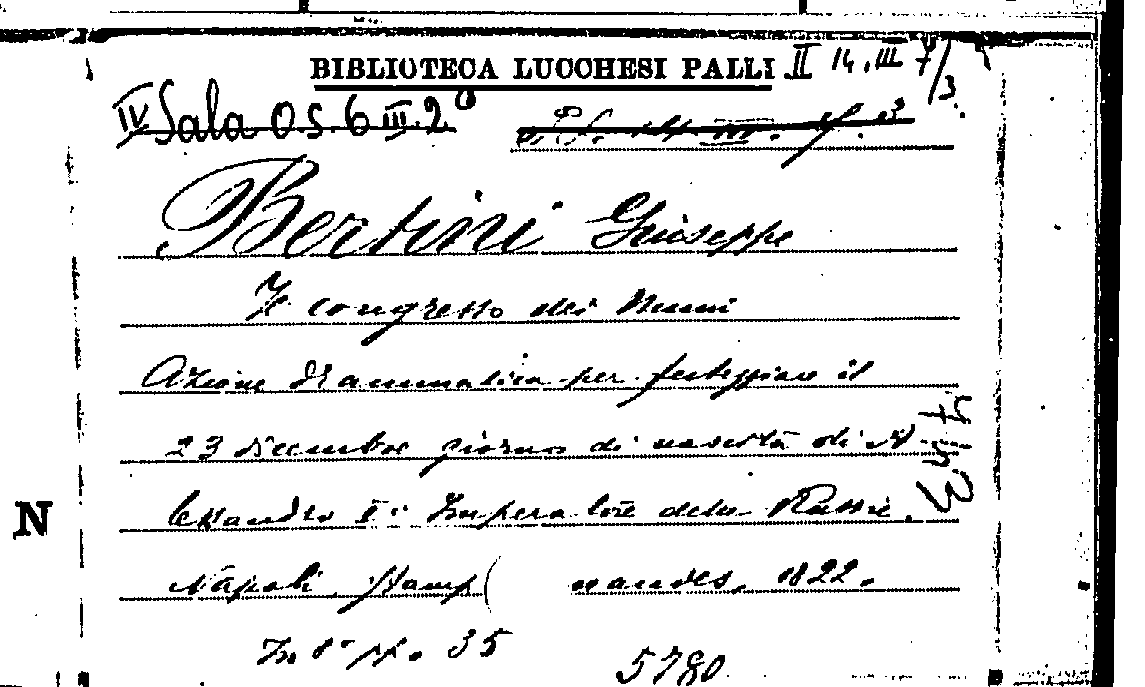 BIBLIOTECA LUCCHESI PALLI II 14.III 7/3.
IV Sala O S. 6 III. 2
Bertini Giuseppe
Il congresso dei Numi
Azione drammatica per festeggiare il
23 dicembre giorno di nascita di Al
lessandro I° Imperatore delle Russie.
Napoli, Stamp( , 1822.
In 8° pp. 35
5780
N